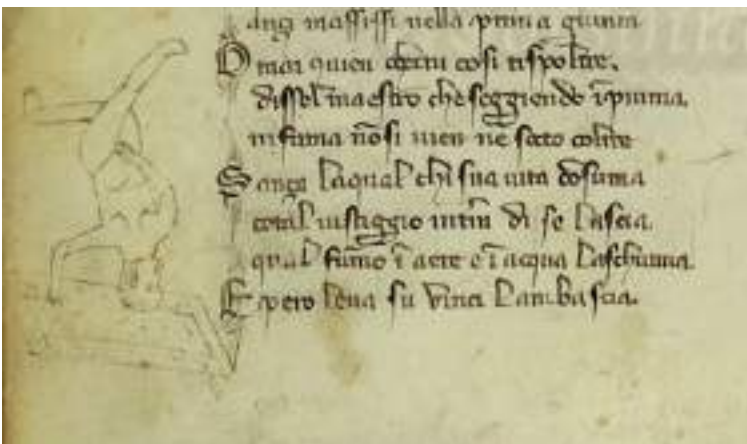 ança massissi nella prima giunta
O mai quien chettu cosi tispoltre.
dissel maestro che seggiendo ĩ piuma.
in fama nõ si uien ne socto coltre
Sança laqual chi sua uita cõsuma
cotal uestiggio in tẽra di se lascia.
qual fummo ĩ aere e ĩ acqua laschiuma.
E pero leua su uinci lambascia.